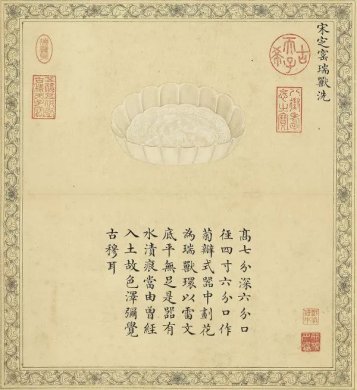 宋定窰瑞獸洗
高七分深六分口
徑四寸六分口作
菊瓣式器中劃花
為瑞獸環以雷文
底平無足是器有
水漬痕當由曾經
入土故色澤彌覺
古穆耳
古希天子
八徵耄念之寶